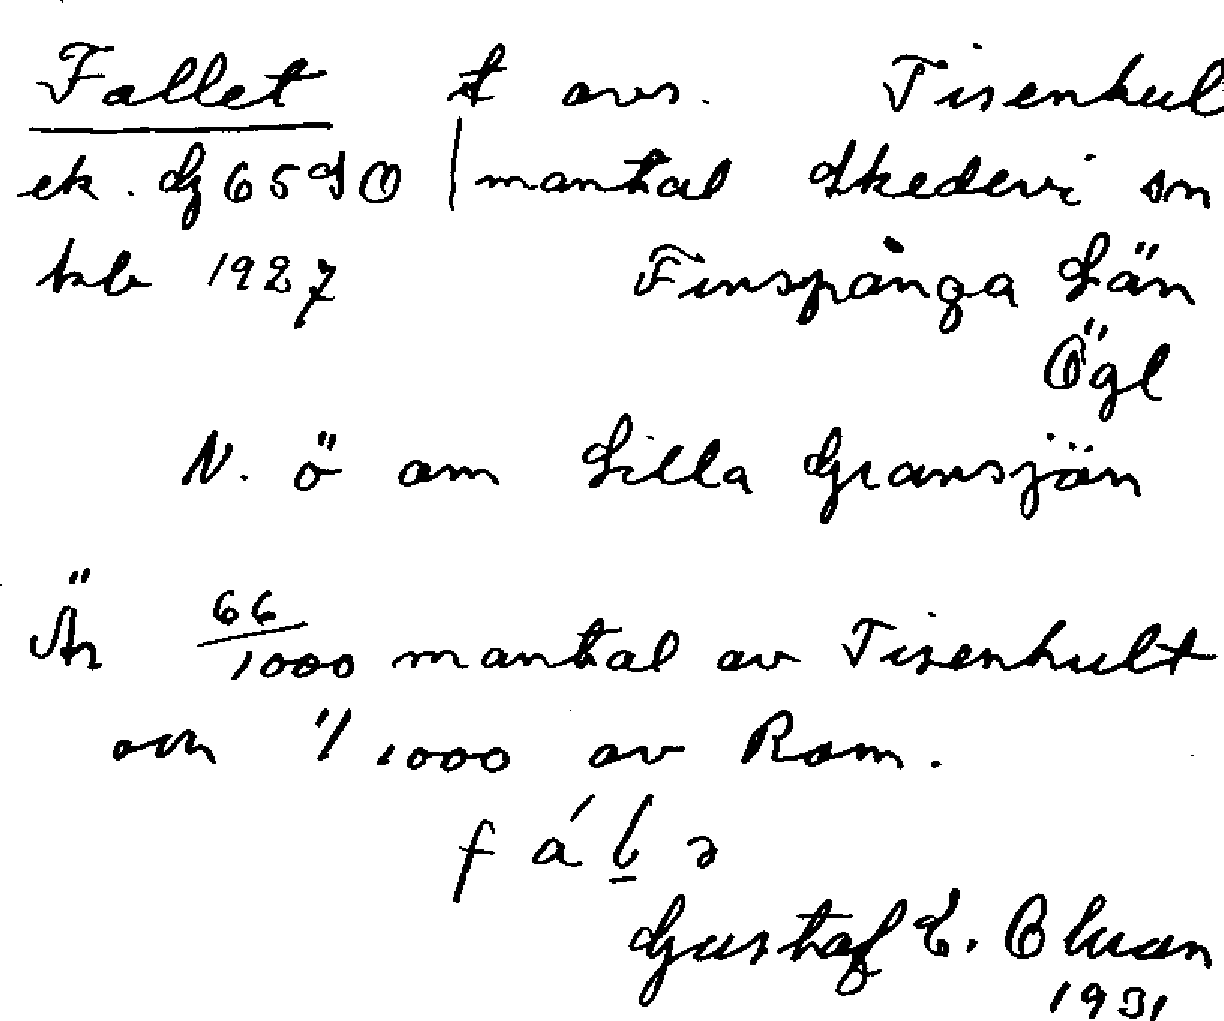 Fallet t avs. Tisenhul
ek. bl 65 SO | mantal Skedevi sn
1927 Finspånga Län
Ögl
N. ö om Lilla Gransjön
Är 66/1000 mantal av Tisenhult
och 11/1000 av Ram.
Gustaf E.
1931